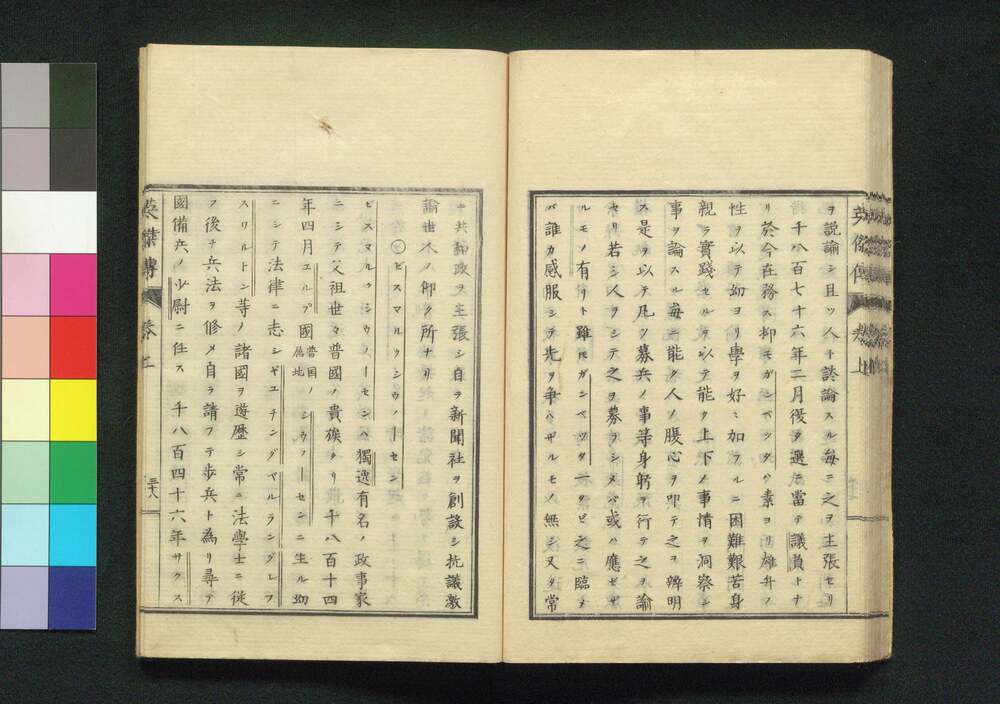 ヲ説諭シ且ツ人ト談論スル毎ニ之ヲ主張セリ
千八百七十六年二月復ヲ選ニ當テ議員トナ
リ於今在務ス抑モガンベツタハ素ヨリ雄弁ノ
性ヲ以テ幼ヨリ學ヲ好ミ加フルニ困難艱苦身
親ラ實踐セルヲ以テ能ク上下ノ事情ヲ洞察シ
事ヲ論スル毎ニ能ク人ノ腹心ヲ叩テ之ヲ辨明
ス是ヲ以テ凡ソ募兵ノ事等身躬ヲ行テ之ヲ論
セリ若シ人ヲシテ之ヲ募ラシメバ或ハ應ゼザ
ルモノ有リト雖モガンベツタ一タビ之ニ臨メ
バ誰カ感服シテ先ヲ争ハザルモノ無シ又タ常
英傑傳 巻上
ニ共和政ヲ主張シ自ラ新聞社ヲ創設シ抗議激
論世人ノ仰ク所ナリ
ビスマルクシウノーセン
ビスマルクシウノーセンハ獨逸有名ノ政事家
ニシテ父祖世々普國ノ貴族タリ千八百十四
年四月エルプ國普国ノ属地シウノーセンニ生ル幼
ニシテ法律ニ志シギユチングベルラングレフ
スワルトン等ノ諸國ヲ遊歴シ常ニ法學士ニ従
フ後チ兵法ヲ修メ自ラ請フテ歩兵ト為リ尋テ
國備兵ノ少尉ニ任ス 千八百四十六年サクス
英傑傳 巻上 三十八